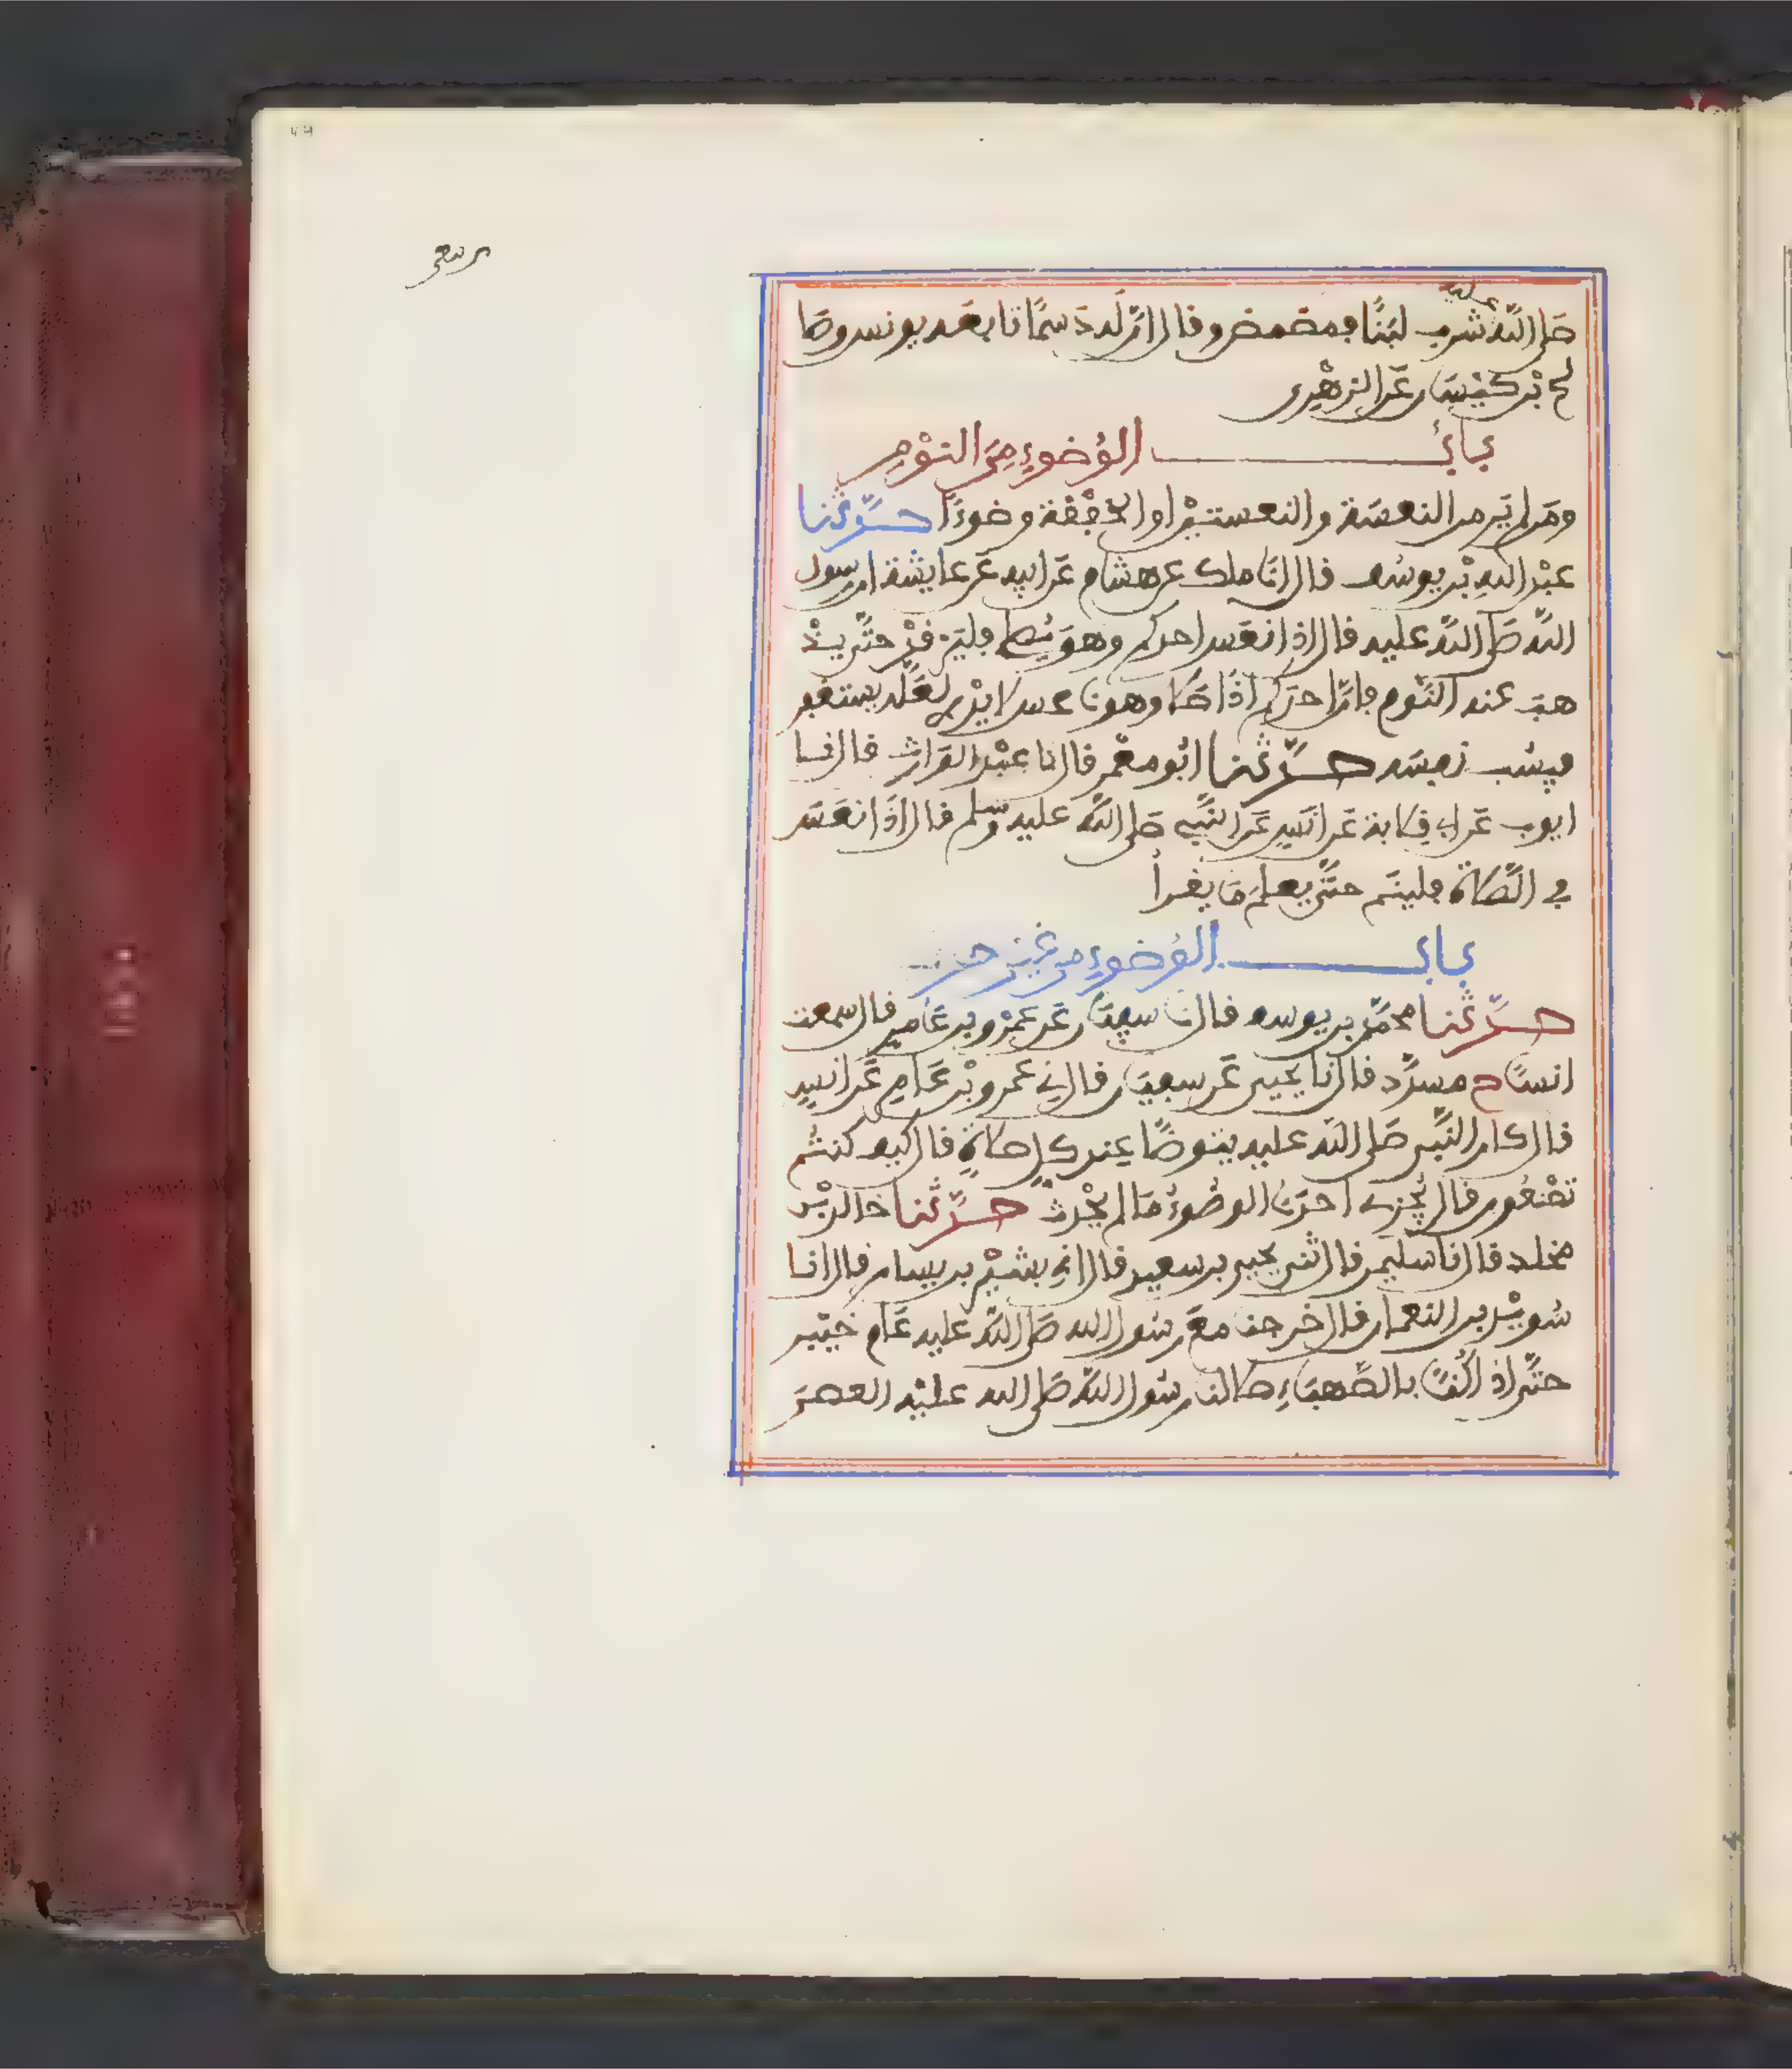 صلى الله عليه شرب لبنا فمضمض وقال ان له دسما تابعه يونس وصا
لح بن كيسان عن الزهري
باب الوضوء من النوم
ومن لم ير من النعسة والنعستين او الخفقة وضوءا حدثنا
عبد الله بن يوسف قال انا ملك عن هشام عن ابيه عن عايشة ان رسول
الله صلى الله عليه قال اذا نعس احدكم وهو يصلي فليرقد حتى يذ
هب عنه النوم فان احدكم اذا صلى وهو ناعس لا يدري لعله يستغفر
فيسب نفسه حدثنا ابو معمر قال نا عبد الوارث قال نا
ايوب عن ابي قلابة عن انس عن النبي صلى الله عليه وسلم قال اذا نعس
في الصلاة فلينم حتى يعلم ما يقرأ
باب الوضوء من غير حدث
حدثنا محمد بن يوسف قال نا سفين عن عمرو بن عامر قال سمعت
انسا ح مسدد قال نا يحيى عن سفين قال ني عمرو بن عامر عن انس
قال كان النبي صلى الله عليه يتوضأ عند كل صلاة قال كيف كنتم
تصنعون قال يجزي احدنا الوضوء ما لم يحدث حدثنا خالد بن
مخلد قال نا سليمن قال ثني يحيى بن سعيد قال اني بشير بن يسار قال انا
سويد بن النعمان قال خرجنا مع رسول الله صلى الله عليه عام خيبر
حتى اذا كنا بالصهباء صلى لنا رسول الله صلى الله عليه العصر